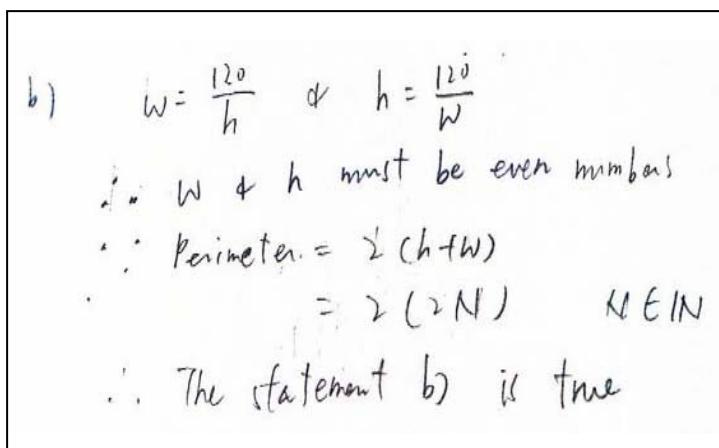 b) w = 120/h & h = 120/w
∴ w & h must be even numbers
∵ Perimeter = 2(h+w)
= 2(2N) N ∈ ℕ
∴ The statement b) is true